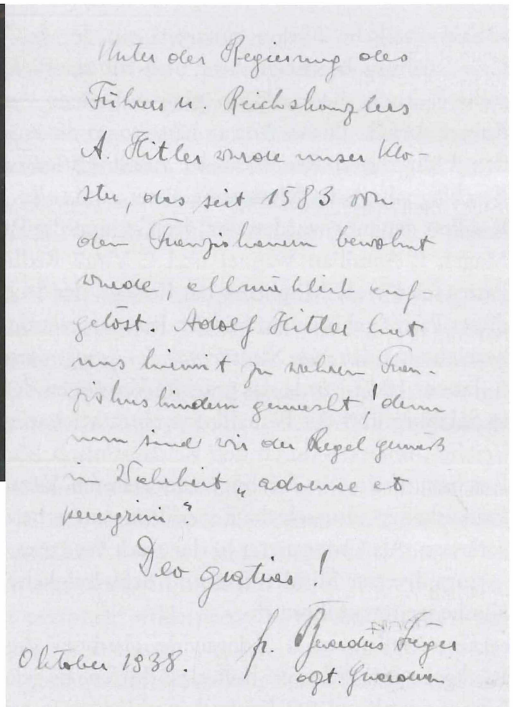 Unter der Regierung des
Führers u. Reichskanzlers
A. Hitler wurde unser Klo-
ster, das seit 1583 von
den Franziskanern bewohnt
wurde allmählich auf
gelöst. Adolf Hitler hat
uns hiemit zu wahren Fran-
ziskuskindern gemacht, denn
nun sind wir der Regel gemäß
in Wahrheit „advenae et
peregrini"
Deo gratias!
fr.
Oktober 1938.